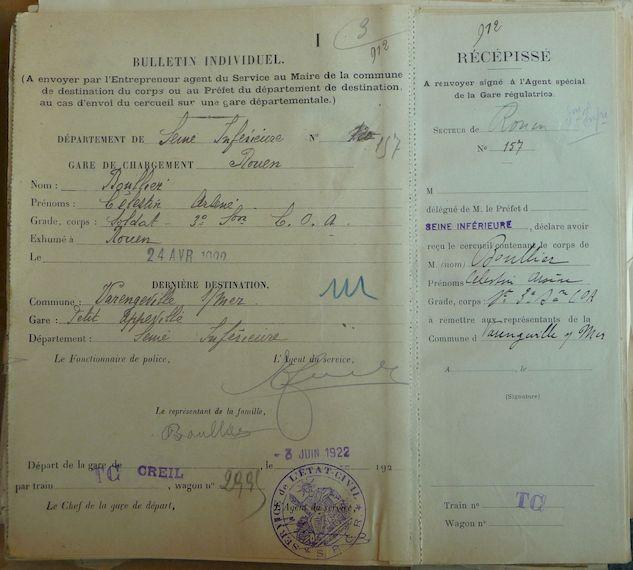 I
3
912
BULLETIN INDIVIDUEL.
(A envoyer par l'Entrepreneur agent du Service au Maire de la commune
de destination du corps ou au Préfet du département de destination,
au cas d'envoi du cercueil sur une gare départementale.)
DÉPARTEMENT DE Seine Inférieure N° 157
GARE DE CHARGEMENT Rouen
Nom : Boullier
Prénoms : Célestin Arsène
Grade, corps : Soldat 3e Son C. O. A.
Exhumé à Rouen
Le 24 AVR
DERNIÈRE DESTINATION.
Commune : Varengeville s/Mer
Gare : Petit Appeville
Département : Seine Inférieure
Le Fonctionnaire de police, L'Agent du service,
Le représentant de la famille,
-3 JUIN 1922
Départ de la gare de CREIL, le 192
par train TC, wagon n°
Le Chef de la gare de départ, L'Agent du service,
SERVICE de L'ÉTAT-CIVIL
912
RÉCÉPISSÉ
A renvoyer signé à l'Agent spécial
de la Gare régulatrice.
SECTEUR DE Rouen
N° 157
M
délégué de M. le Préfet d
SEINE INFÉRIEURE, déclare avoir
reçu le cercueil contenant le corps de
M. (nom) Boullier
Prénoms Célestin Arsène
Grade, corps : COA
à remettre aux représentants de la
Commune d Varengeville s/ Mer
A , le
(Signature)
Train n° TC
Wagon n°